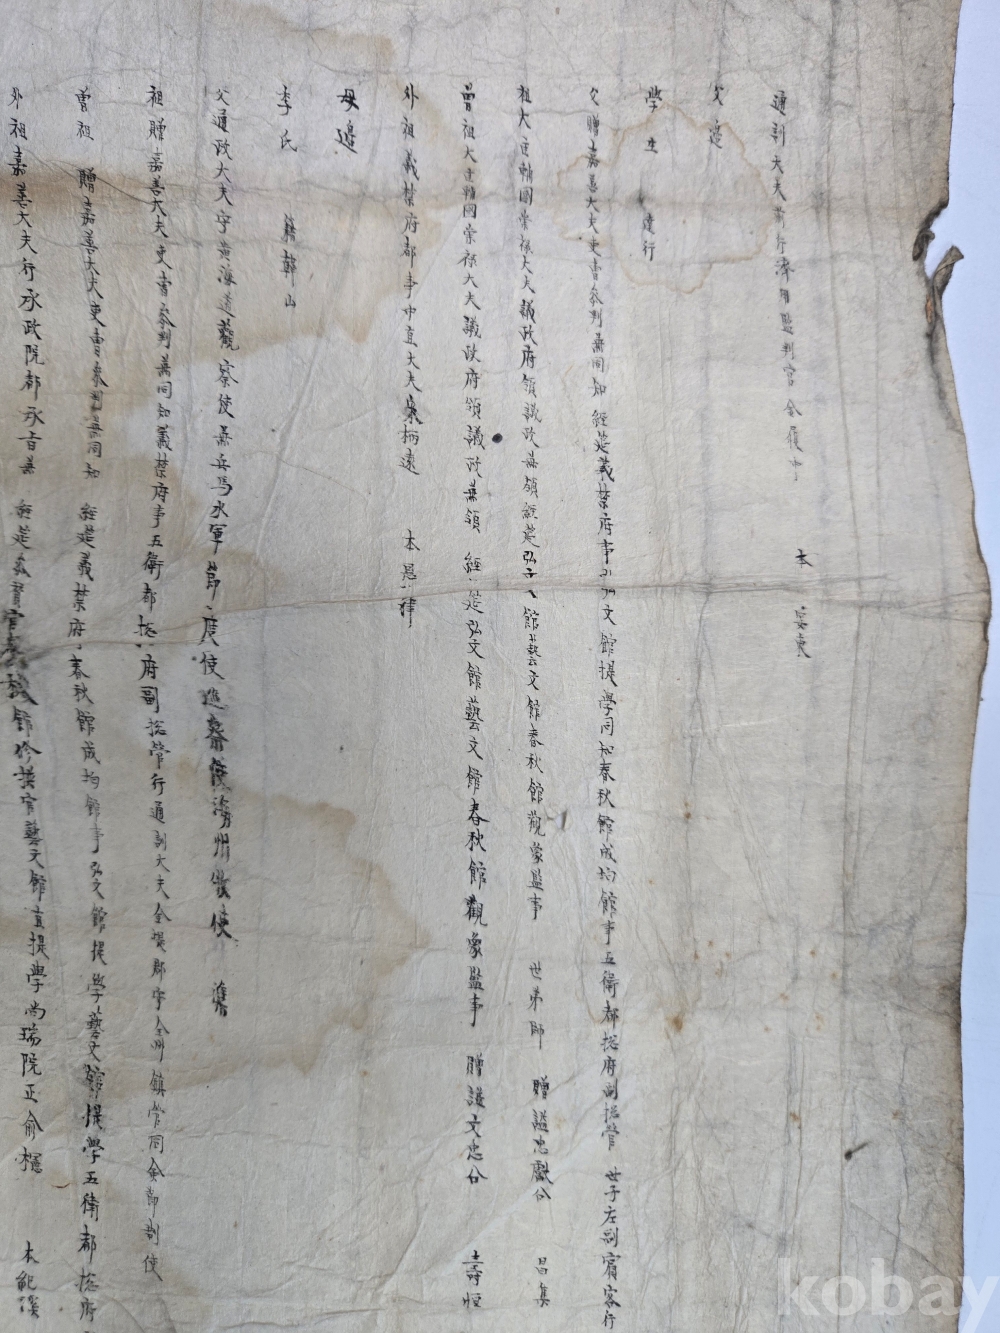 通訓大夫前行濟用監判官金履中 本 安東
父邊
學生 達行
父贈嘉善大夫吏曹參判兼同知 經筵義禁府事弘文館提學同知春秋館成均館事五衛都摠府副摠管 世子左副賓客行
祖大匡輔國崇祿大夫議政府領議政兼領經筵弘文館藝文館春秋館觀象監事 世弟師 贈謚忠獻公 昌集
曾祖大匡輔國崇祿大夫議政府領議政兼領 經筵弘文館藝文館春秋館觀象監事 贈謚文忠公 壽恒
外祖義禁府都事中直大夫宋炳遠 本恩津
母邊
李氏 籍韓山
父通政大夫守黃海道觀察使兼兵馬水軍節度使巡察使海州牧使 潗
祖贈嘉善大夫吏曹參判兼同知義禁府事五衛都摠府副摠管行通訓大夫金堤郡守全州鎮管同僉節制使
曾祖 贈嘉善大夫吏曹參判兼同知 經筵義禁府春秋館成均館事弘文館提學藝文館提學五衛都摠府
外祖嘉善大夫行承政院都承旨兼 經筵參贊官春秋館修撰官藝文館直提學尚瑞院正俞櫶 本杞溪
kobay